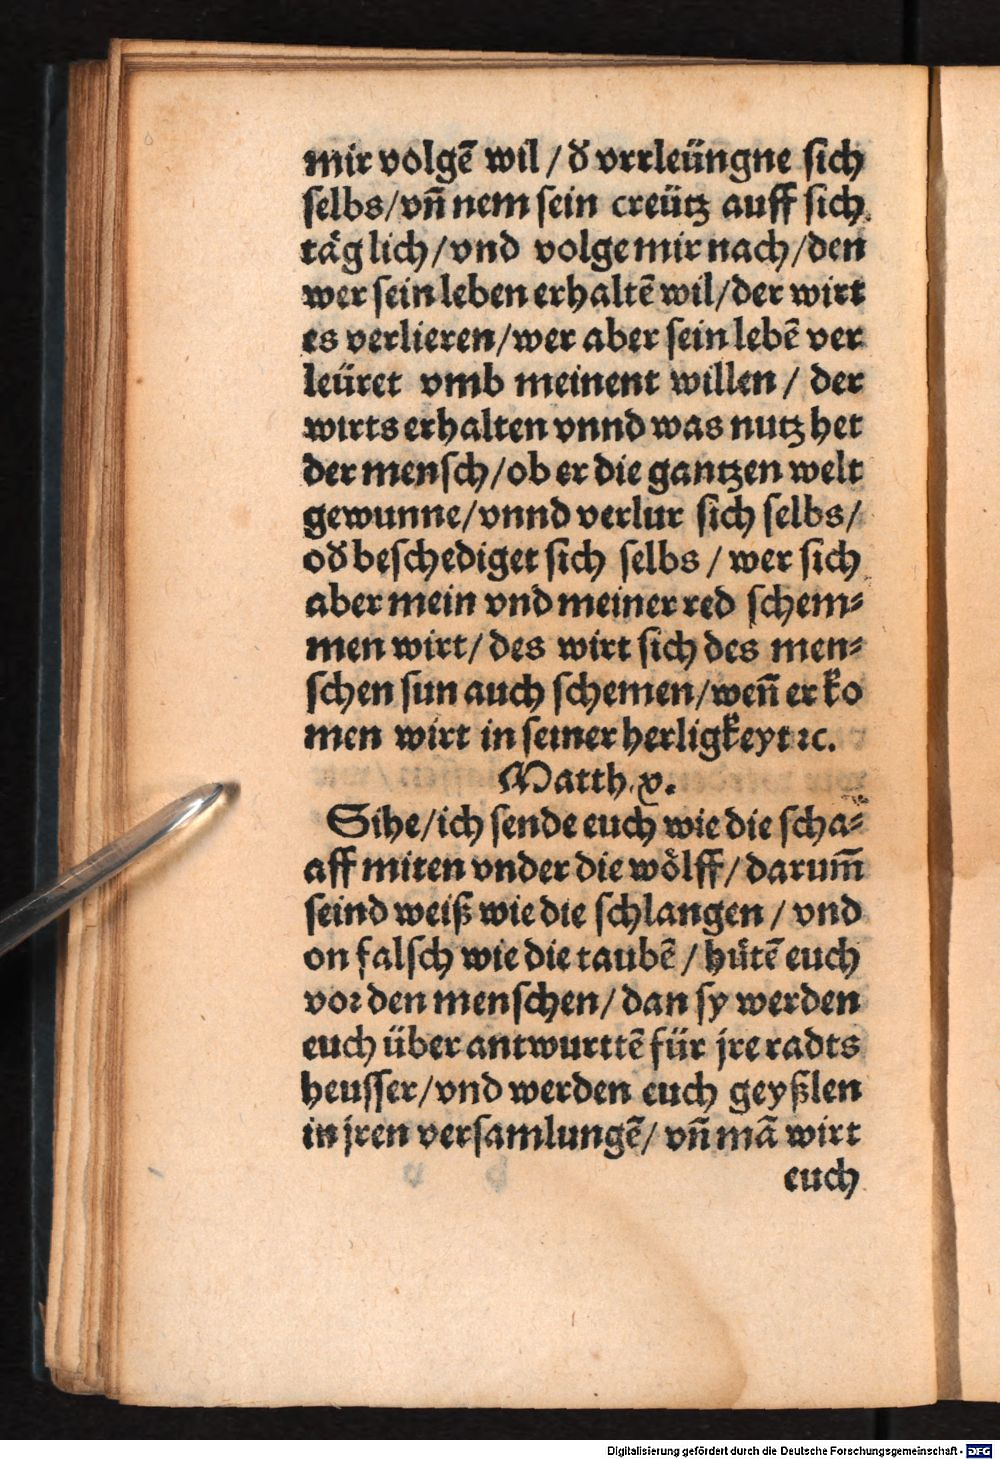 mir volgē wil / d̕ vrrleüngne sich
selbs/vn̄ nem sein creütz auff sich
täglich/vnd volge mir nach/den
wer sein leben erhaltē wil/der wirt
es verlieren/wer aber sein lebē ver
leüret vmb meinent willen / der
wirts erhalten vnnd was nutz het
der mensch/ob er die gantzen welt
gewunne/vnnd verlur sich selbs/
od̕ beschediget sich selbs / wer sich
aber mein vnd meiner red schem⸗
men wirt/ des wirt sich des men⸗
schen sun auch schemen/wen̄ er ko
men wirt in seiner herligkeyt ꝛc.
Matth. v.
Sihe/ich sende euch wie die scha⸗
aff miten vnder die wölff/ darum̄
seind weiß wie die schlangen / vnd
on falsch wie die taubē / hütē euch
vor den menschen/ dan sy werden
euch über antwurttē für jre radts
heusser/vnd werden euch geyßlen
in jren versamlungē/ vn̄ mā wirt
euch
Digitalisierung gefördert durch die Deutsche Forschungsgemeinschaft - DFG